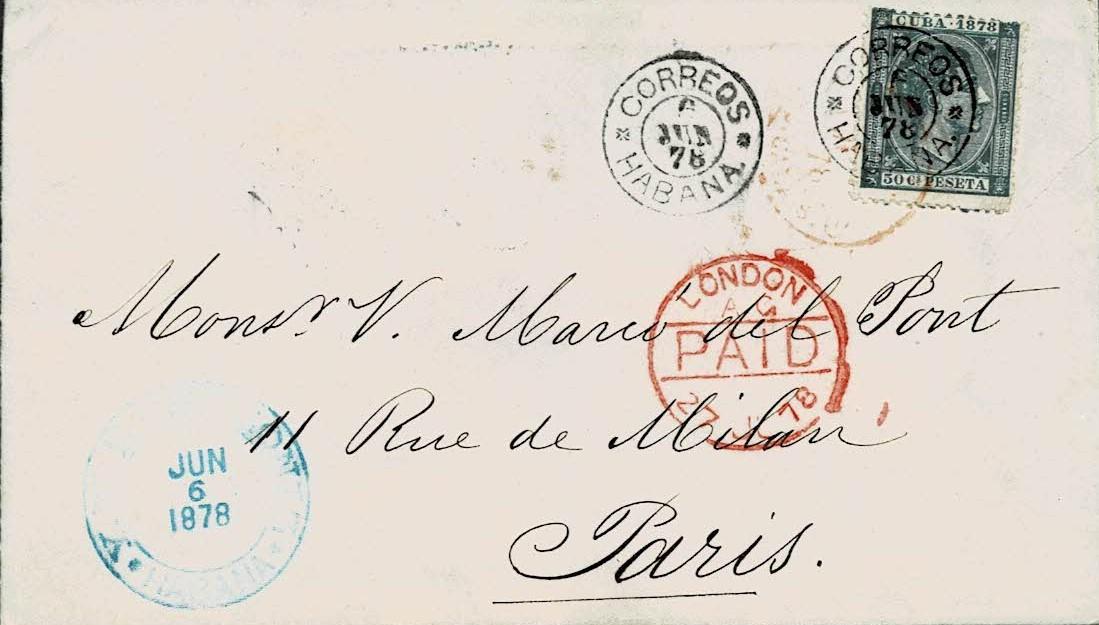 CUBA · 1878
50 Cs PESETA
CORREOS
6
JUN
78
HABANA
CORREOS
6
JUN
78
HABANA
LONDON
PAID
27 JU 78
Monsr V. Marcó del Pont
11 Rue de Milan
Paris.
JUN
6
1878
HABANA